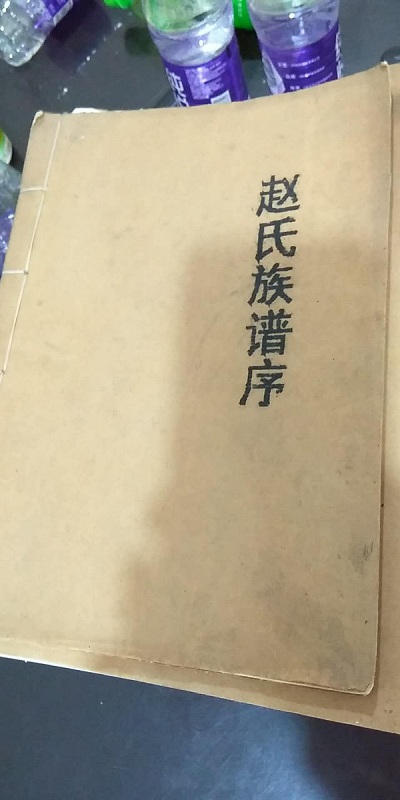 赵氏族谱序